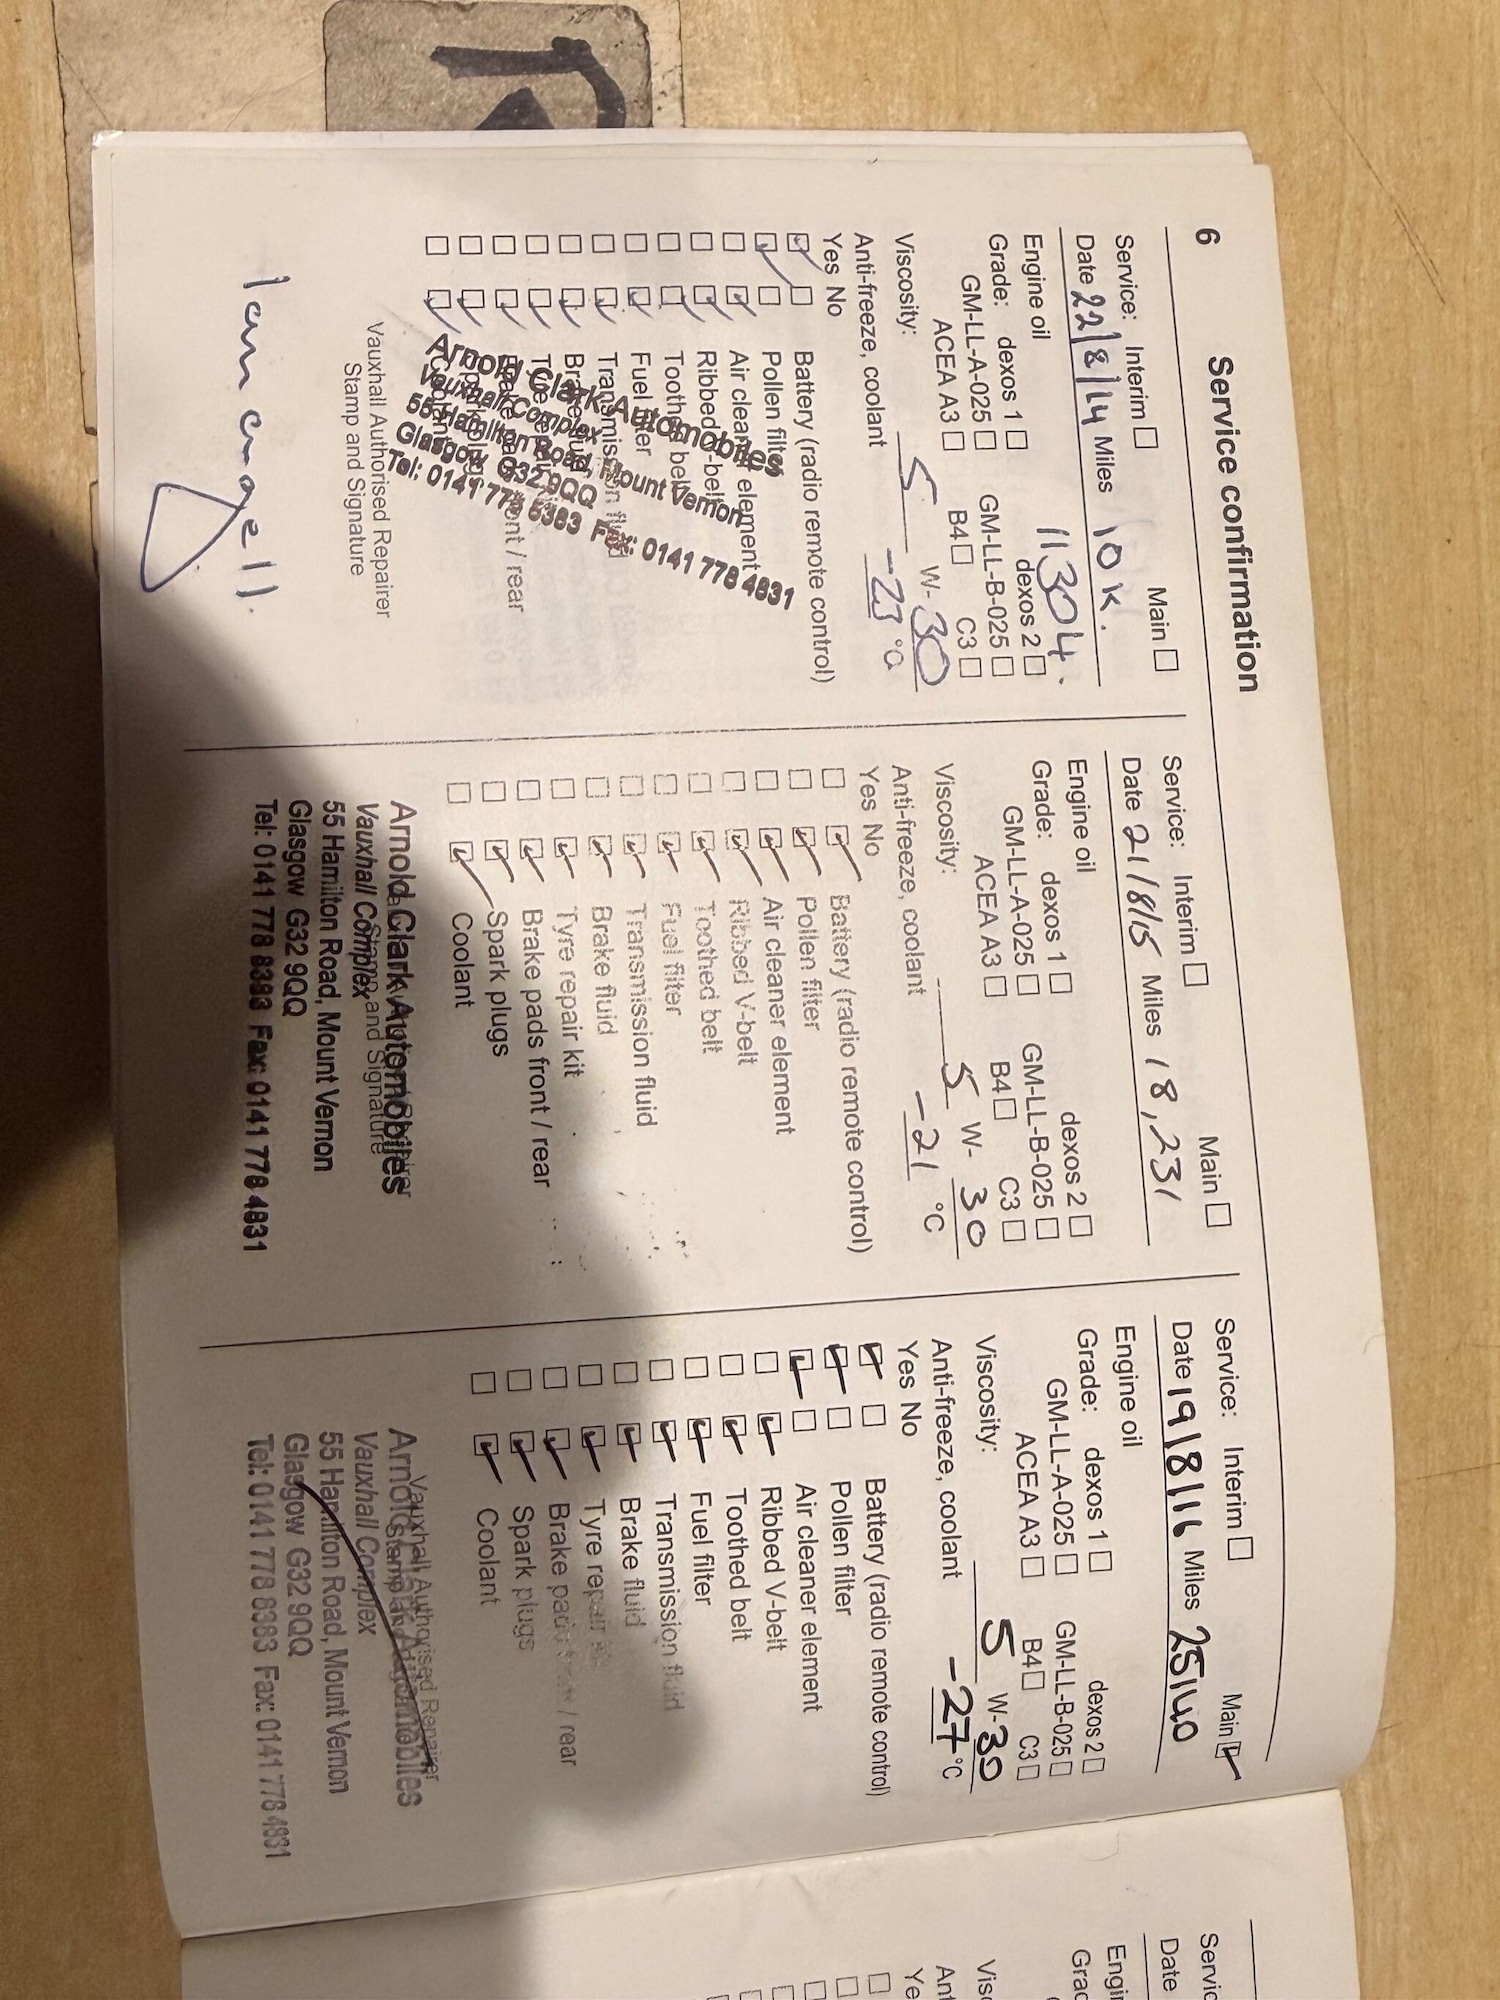 R
6
Service confirmation
Service: Interim ☐ Main ☐
Date 22/8/14 Miles 10K.
11304.
Engine oil
Grade: dexos 1 ☐ dexos 2 ☐
GM-LL-A-025 ☐ GM-LL-B-025 ☐
ACEA A3 ☐ B4 ☐ C3 ☐
Viscosity: 5 W-30
Anti-freeze, coolant -23 °C
Yes No
☑ ☐ Battery (radio remote control)
☑ ☐ Pollen filter
☐ ☑ Air cleaner element
☐ ☑ Ribbed V-belt
☐ ☑ Toothed belt
☐ ☑ Fuel filter
☐ ☑ Transmission fluid
☐ ☑ Brake fluid
☐ ☑
☐ ☑ front / rear
☐ ☑
☐ ☑
Arnold Clark Automobiles
Vauxhall Complex
55 Hamilton Road, Mount Vernon
Glasgow G32 9QQ
Tel: 0141 778 8383 Fax: 0141 778 4831
Vauxhall Authorised Repairer
Stamp and Signature
Service: Interim ☐ Main ☐
Date 21/8/15 Miles 18,231
Engine oil
Grade: dexos 1 ☐ dexos 2 ☐
GM-LL-A-025 ☐ GM-LL-B-025 ☐
ACEA A3 ☐ B4 ☐ C3 ☐
Viscosity: 5 W-30
Anti-freeze, coolant -21 °C
Yes No
☐ ☑ Battery (radio remote control)
☐ ☑ Pollen filter
☐ ☑ Air cleaner element
☐ ☑ Ribbed V-belt
☐ ☑ Toothed belt
☐ ☑ Fuel filter
☐ ☑ Transmission fluid
☐ ☑ Brake fluid
☐ ☑ Tyre repair kit
☐ ☑ Brake pads front / rear
☐ ☑ Spark plugs
☐ ☑ Coolant
Arnold Clark Automobiles
Stamp and Signature
Vauxhall Complex
55 Hamilton Road, Mount Vernon
Glasgow G32 9QQ
Tel: 0141 778 8383 Fax: 0141 778 4831
Service: Interim ☐ Main ☑
Date 19/8/16 Miles 25140
Engine oil
Grade: dexos 1 ☐ dexos 2 ☐
GM-LL-A-025 ☐ GM-LL-B-025 ☐
ACEA A3 ☐ B4 ☐ C3 ☐
Viscosity: 5 W-30
Anti-freeze, coolant -27 °C
Yes No
☑ ☐ Battery (radio remote control)
☑ ☐ Pollen filter
☑ ☐ Air cleaner element
☐ ☑ Ribbed V-belt
☐ ☑ Toothed belt
☐ ☑ Fuel filter
☐ ☑ Transmission fluid
☐ ☑ Brake fluid
☐ ☑ Tyre repair
☐ ☑ Brake pads front / rear
☐ ☑ Spark plugs
☐ ☑ Coolant
Vauxhall Authorised Repairer
Arnold Clark Automobiles
Vauxhall Complex
55 Hamilton Road, Mount Vernon
Glasgow G32 9QQ
Tel: 0141 778 8383 Fax: 0141 778 4831